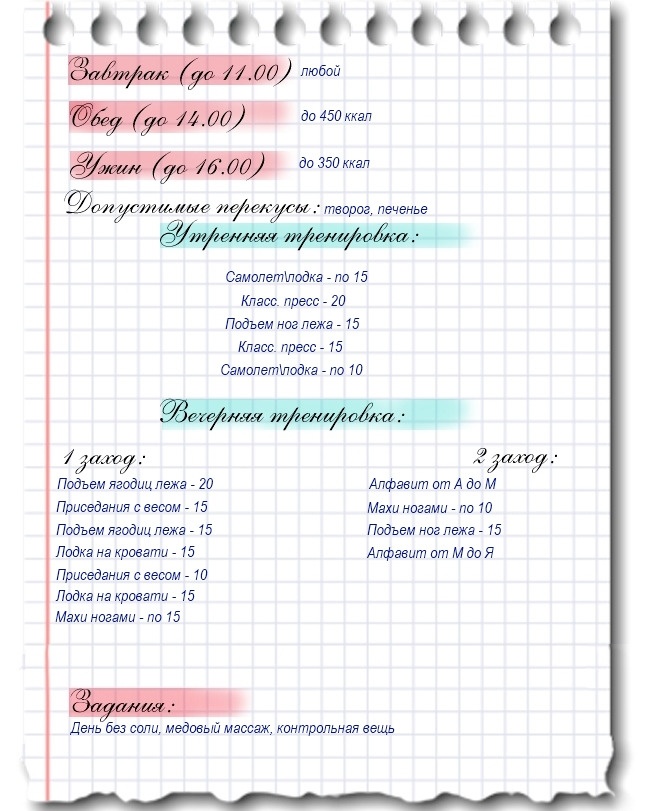 Завтрак (до 11.00) любой
Обед (до 14.00) до 450 ккал
Ужин (до 16.00) до 350 ккал
Допустимые перекусы: творог, печенье
Утренняя тренировка:
Самолет\лодка - по 15
Класс. пресс - 20
Подъем ног лежа - 15
Класс. пресс - 15
Самолет\лодка - по 10
Вечерняя тренировка:
1 заход:
Подъем ягодиц лежа - 20
Приседания с весом - 15
Подъем ягодиц лежа - 15
Лодка на кровати - 15
Приседания с весом - 10
Лодка на кровати - 15
Махи ногами - по 15
2 заход:
Алфавит от А до М
Махи ногами - по 10
Подъем ног лежа - 15
Алфавит от М до Я
Задания:
День без соли, медовый массаж, контрольная вещь